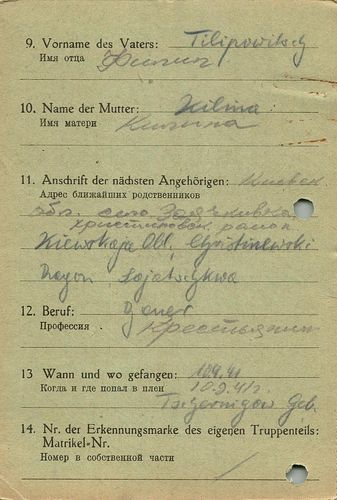 9. Vorname des Vaters: Filipowitsch
Имя отца Филип
10. Name der Mutter: Kilina
Имя матери Килина
11. Anschrift der nächsten Angehörigen: Киевск
Адрес ближайших родственников
обл. село Заячкивка
христиновск район
Kiewskaja Obl. Christinewski
Rayon Sajatschkwa
12. Beruf: Bauer
Профессия Крестьянин
13 Wann und wo gefangen: 10.9.41
Когда и где попал в плен 10.9.41г.
Tschernigow Geb.
14. Nr. der Erkennungsmarke des eigenen Truppenteils:
Matrikel-Nr.
Номер в собственной части /